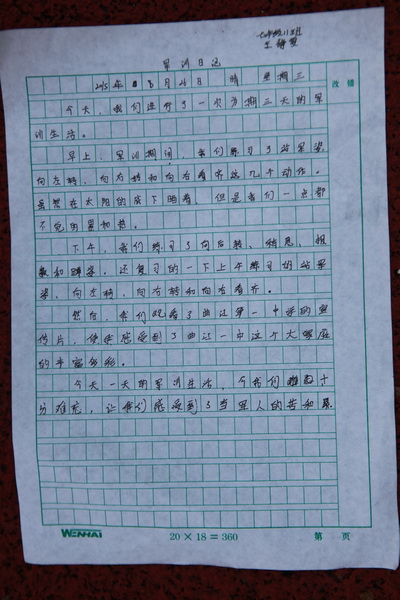 七年级11班
军训日记
2015年8月26日 晴 星期三
改错
今天,我们进行了一次为期三天的军
训生活。
早上,军训期间,我们练习了站军姿
向左转,向右转和向右看齐这几个动作。
虽然在太阳的底下晒着,但是我们一点都
不觉的累和热。
下午,我们练习了向后转、稍息、报
数和蹲姿,还复习的一下上午练习的站军
姿,向左转,向右转和向右看齐。
然后,我们观看了曲江第一中学的宣
传片,使我感受到了曲江一中这个大家庭
的丰富多彩。
今天一天的军训生活,令我们难忘十
分难忘,让我们感受到了当军人的苦和累
WENHAI
20×18=360
第 页